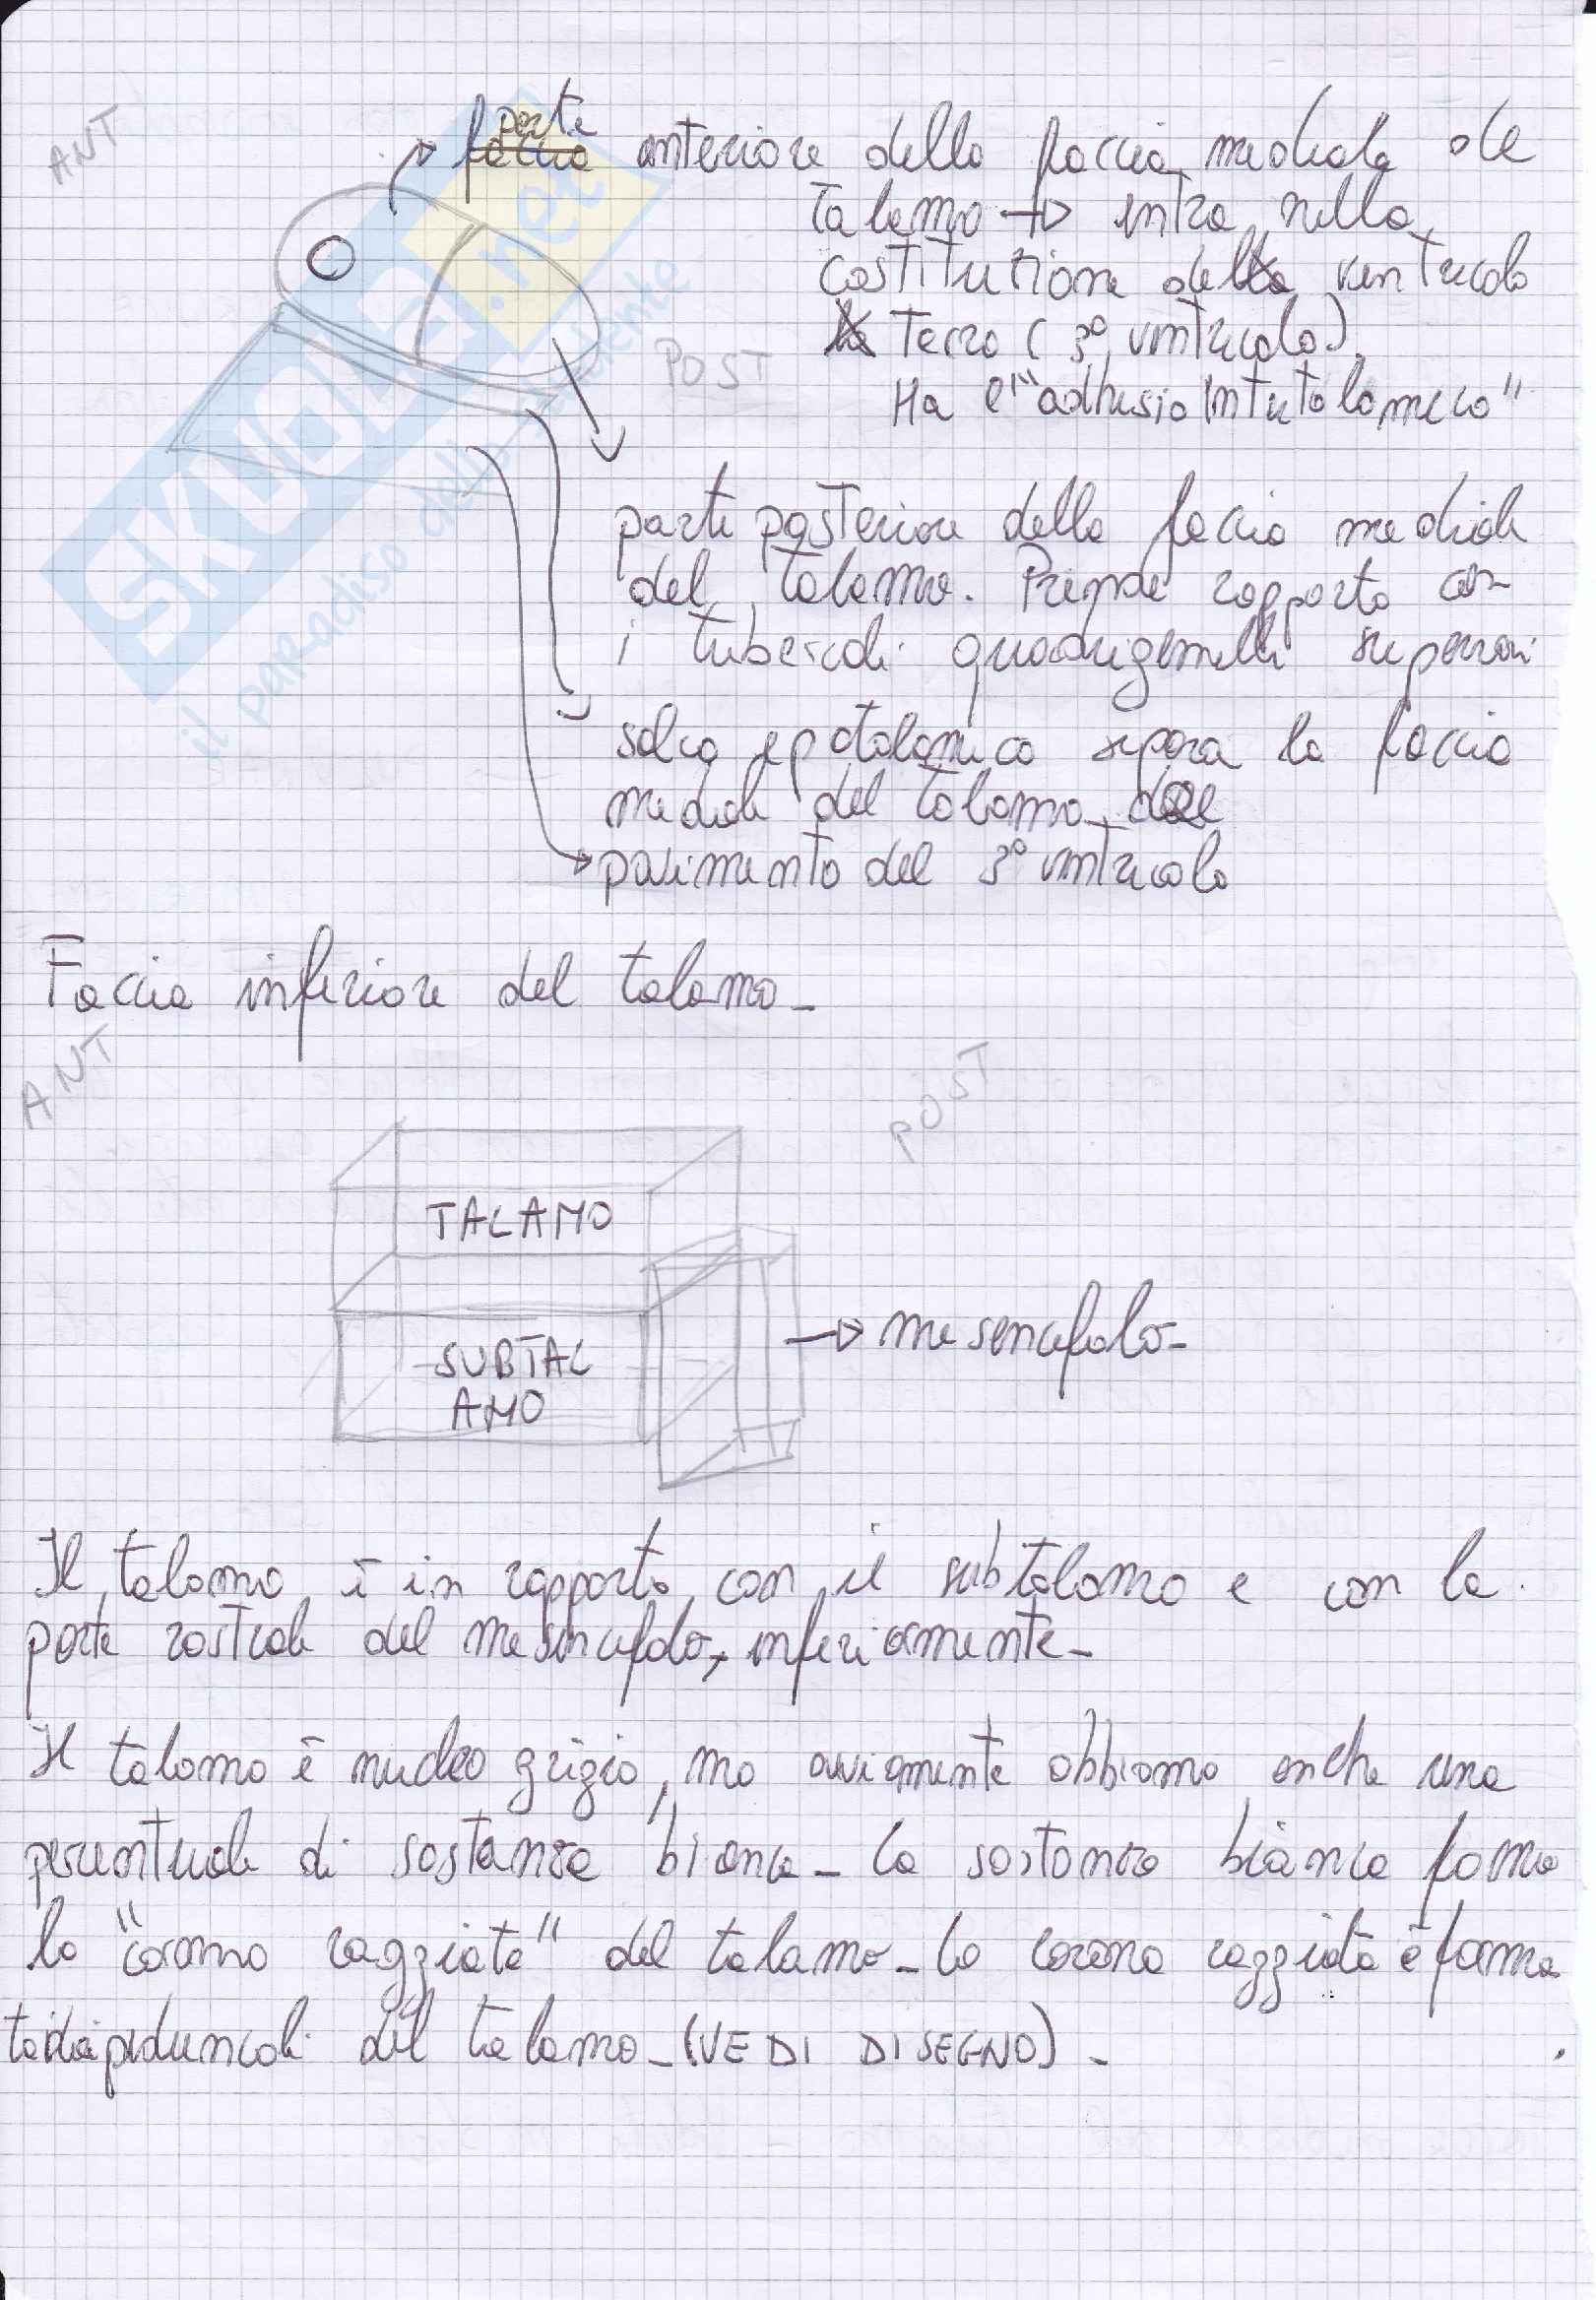 ANT
parte
faccia anteriore della faccia mediale del
talamo → entra nella
costituzione della ventricolo
la terzo (3° ventricolo).
POST
Ha l'"adhesio intertalamica"
parte posteriore della faccia mediale
del talamo. Prende rapporto con
i tubercoli quadrigemelli superiori
solco epotalamico separa la faccia
mediale del talamo dal
pavimento del 3° ventricolo
SKUOLA.net
il paradiso dello studente
Faccia inferiore del talamo-
ANT
POST
TALAMO
SUBTAL
AMO
→ mesencefalo-
Il talamo è in rapporto con il subtalamo e con la
parte rostrale del mesencefalo, inferiormente-
Il talamo è nucleo grigio, ma ovviamente abbiamo anche una
percentuale di sostanza bianca- La sostanza bianca forma
la "corona raggiata" del talamo- La corona raggiata è forma
ta dai peduncoli del talamo-(VEDI DISEGNO)-